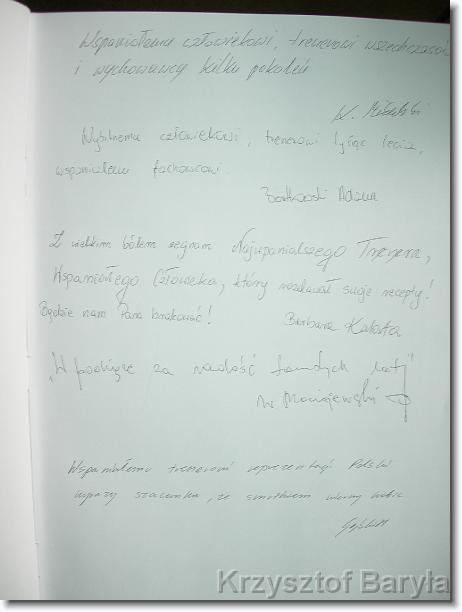 Wspaniałemu człowiekowi, trenerowi wszechczasów
i wychowawcy kilku pokoleń
Wybitnemu człowiekowi, trenerowi tysiąc lecia,
wspaniałemu fachowcowi.
Bartkowski Adam
Z wielkim bólem żegnam Najwspanialszego Trenera,
Wspaniałego Człowieka, który rozdawał swoje recepty!
Będzie nam Pana brakować!
Barbara
"W podzięce za radość tamtych lat"
Maciejewski
Wspaniałemu trenerowi reprezentacji Polski
wyrazy szacunku, ze smutkiem wierny kibic
Krzysztof Baryła